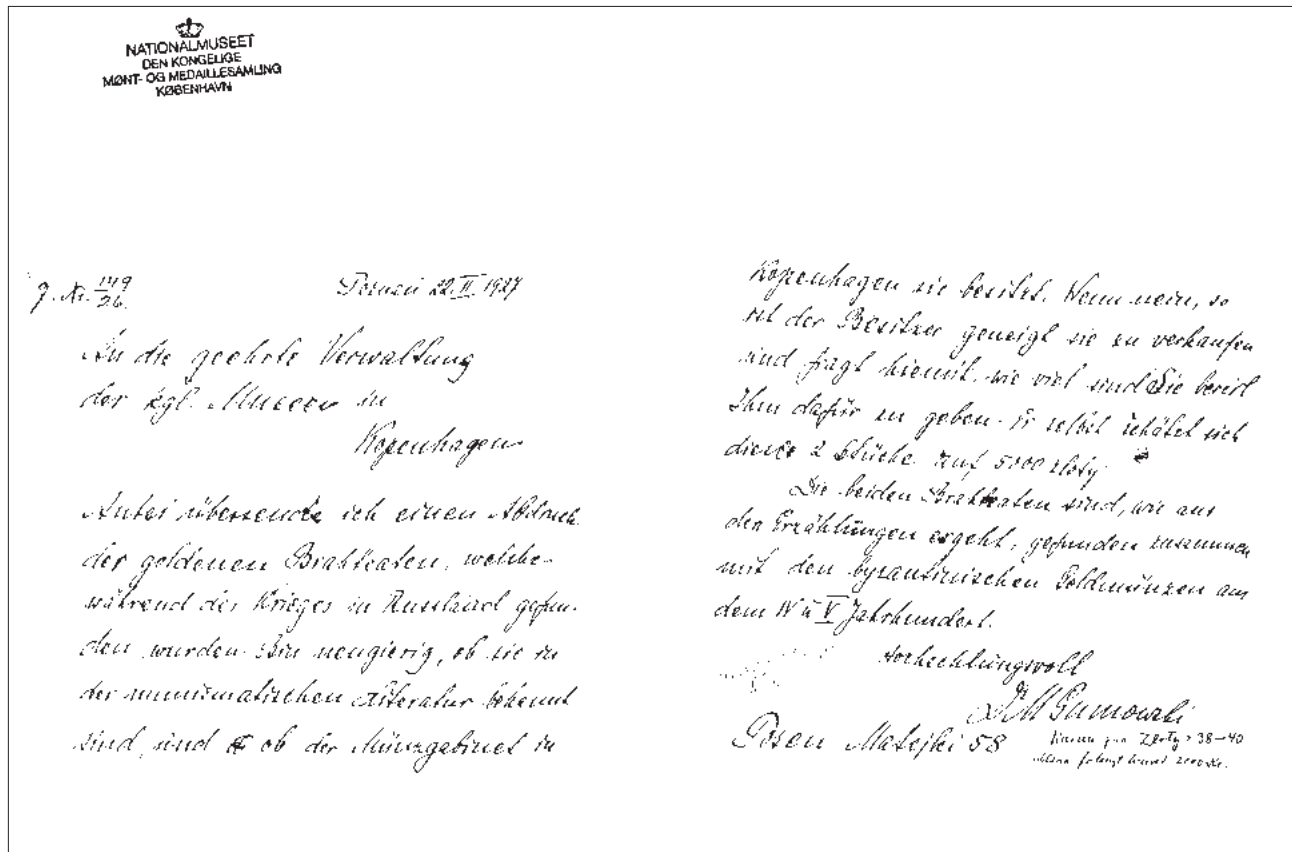 NATIONALMUSEET
DEN KONGELIGE
MØNT- OG MEDAILLESAMLING
KØBENHAVN
J. Nr. 1119/26.
Poznań 22.II.1927
An die geehrte Verwaltung
der kgl. Museen in
Kopenhagen
Anbei übersende ich einen Abdruck
der goldenen Brakteaten, welche
während des Krieges in Russland gefun-
den wurden. Bin neugierig, ob sie in
der numismatischen Literatur bekannt
sind, und ob der Münzgabinet in
Kopenhagen sie besitzt. Wenn nein, so
ist der Besitzer geneigt sie zu verkaufen
und fragt hiemit, wie viel sind Sie bereit
Ihm dafür zu geben. Er selbst schätzt sich
diese 2 Stücke auf 5000 zloty.
Die beiden Brakteaten sind, wie aus
den Erzählungen ergeht, gefunden zusammen
mit den byzantinischen Goldmünzen aus
dem IV u V Jahrhundert.
Hochachtungsvoll
Dr M Gumowski
Posen Matejki 58
Zloty = 38-40
2000 Kr.